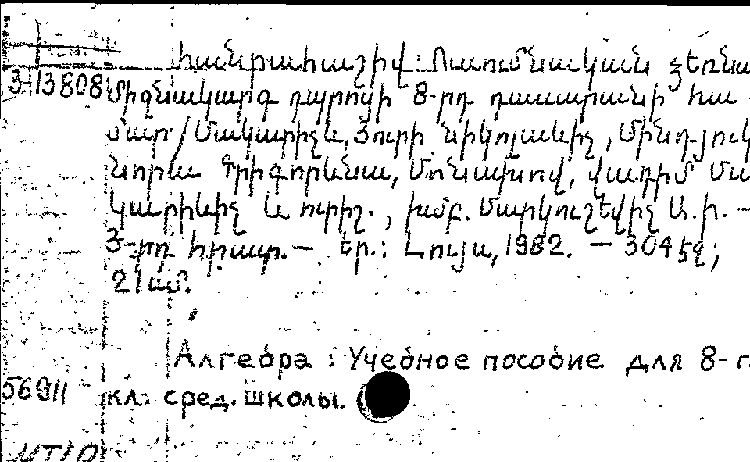 Հանրահաշիվ: Ուսումնական ձեռնա
3-13808 Միջնակարգ դպրոցի 8-րդ դասարանի հա-
մար/Մակարիչև, Յուրի Նիկոլաևիչ, Մինդյուկ
Նորա Գրիգորևնա, Մոնախով, Վադիմ Մա
կարիևիչ և ուրիշ., խմբ. Մարկուշևիչ Ա.ի. -
3-րդ հրատ. — Եր.: Լույս, 1982. — 304 էջ;
21 սմ.
Алгебра : Учебное пособие для 8-г
56911 кл. сред. школы.